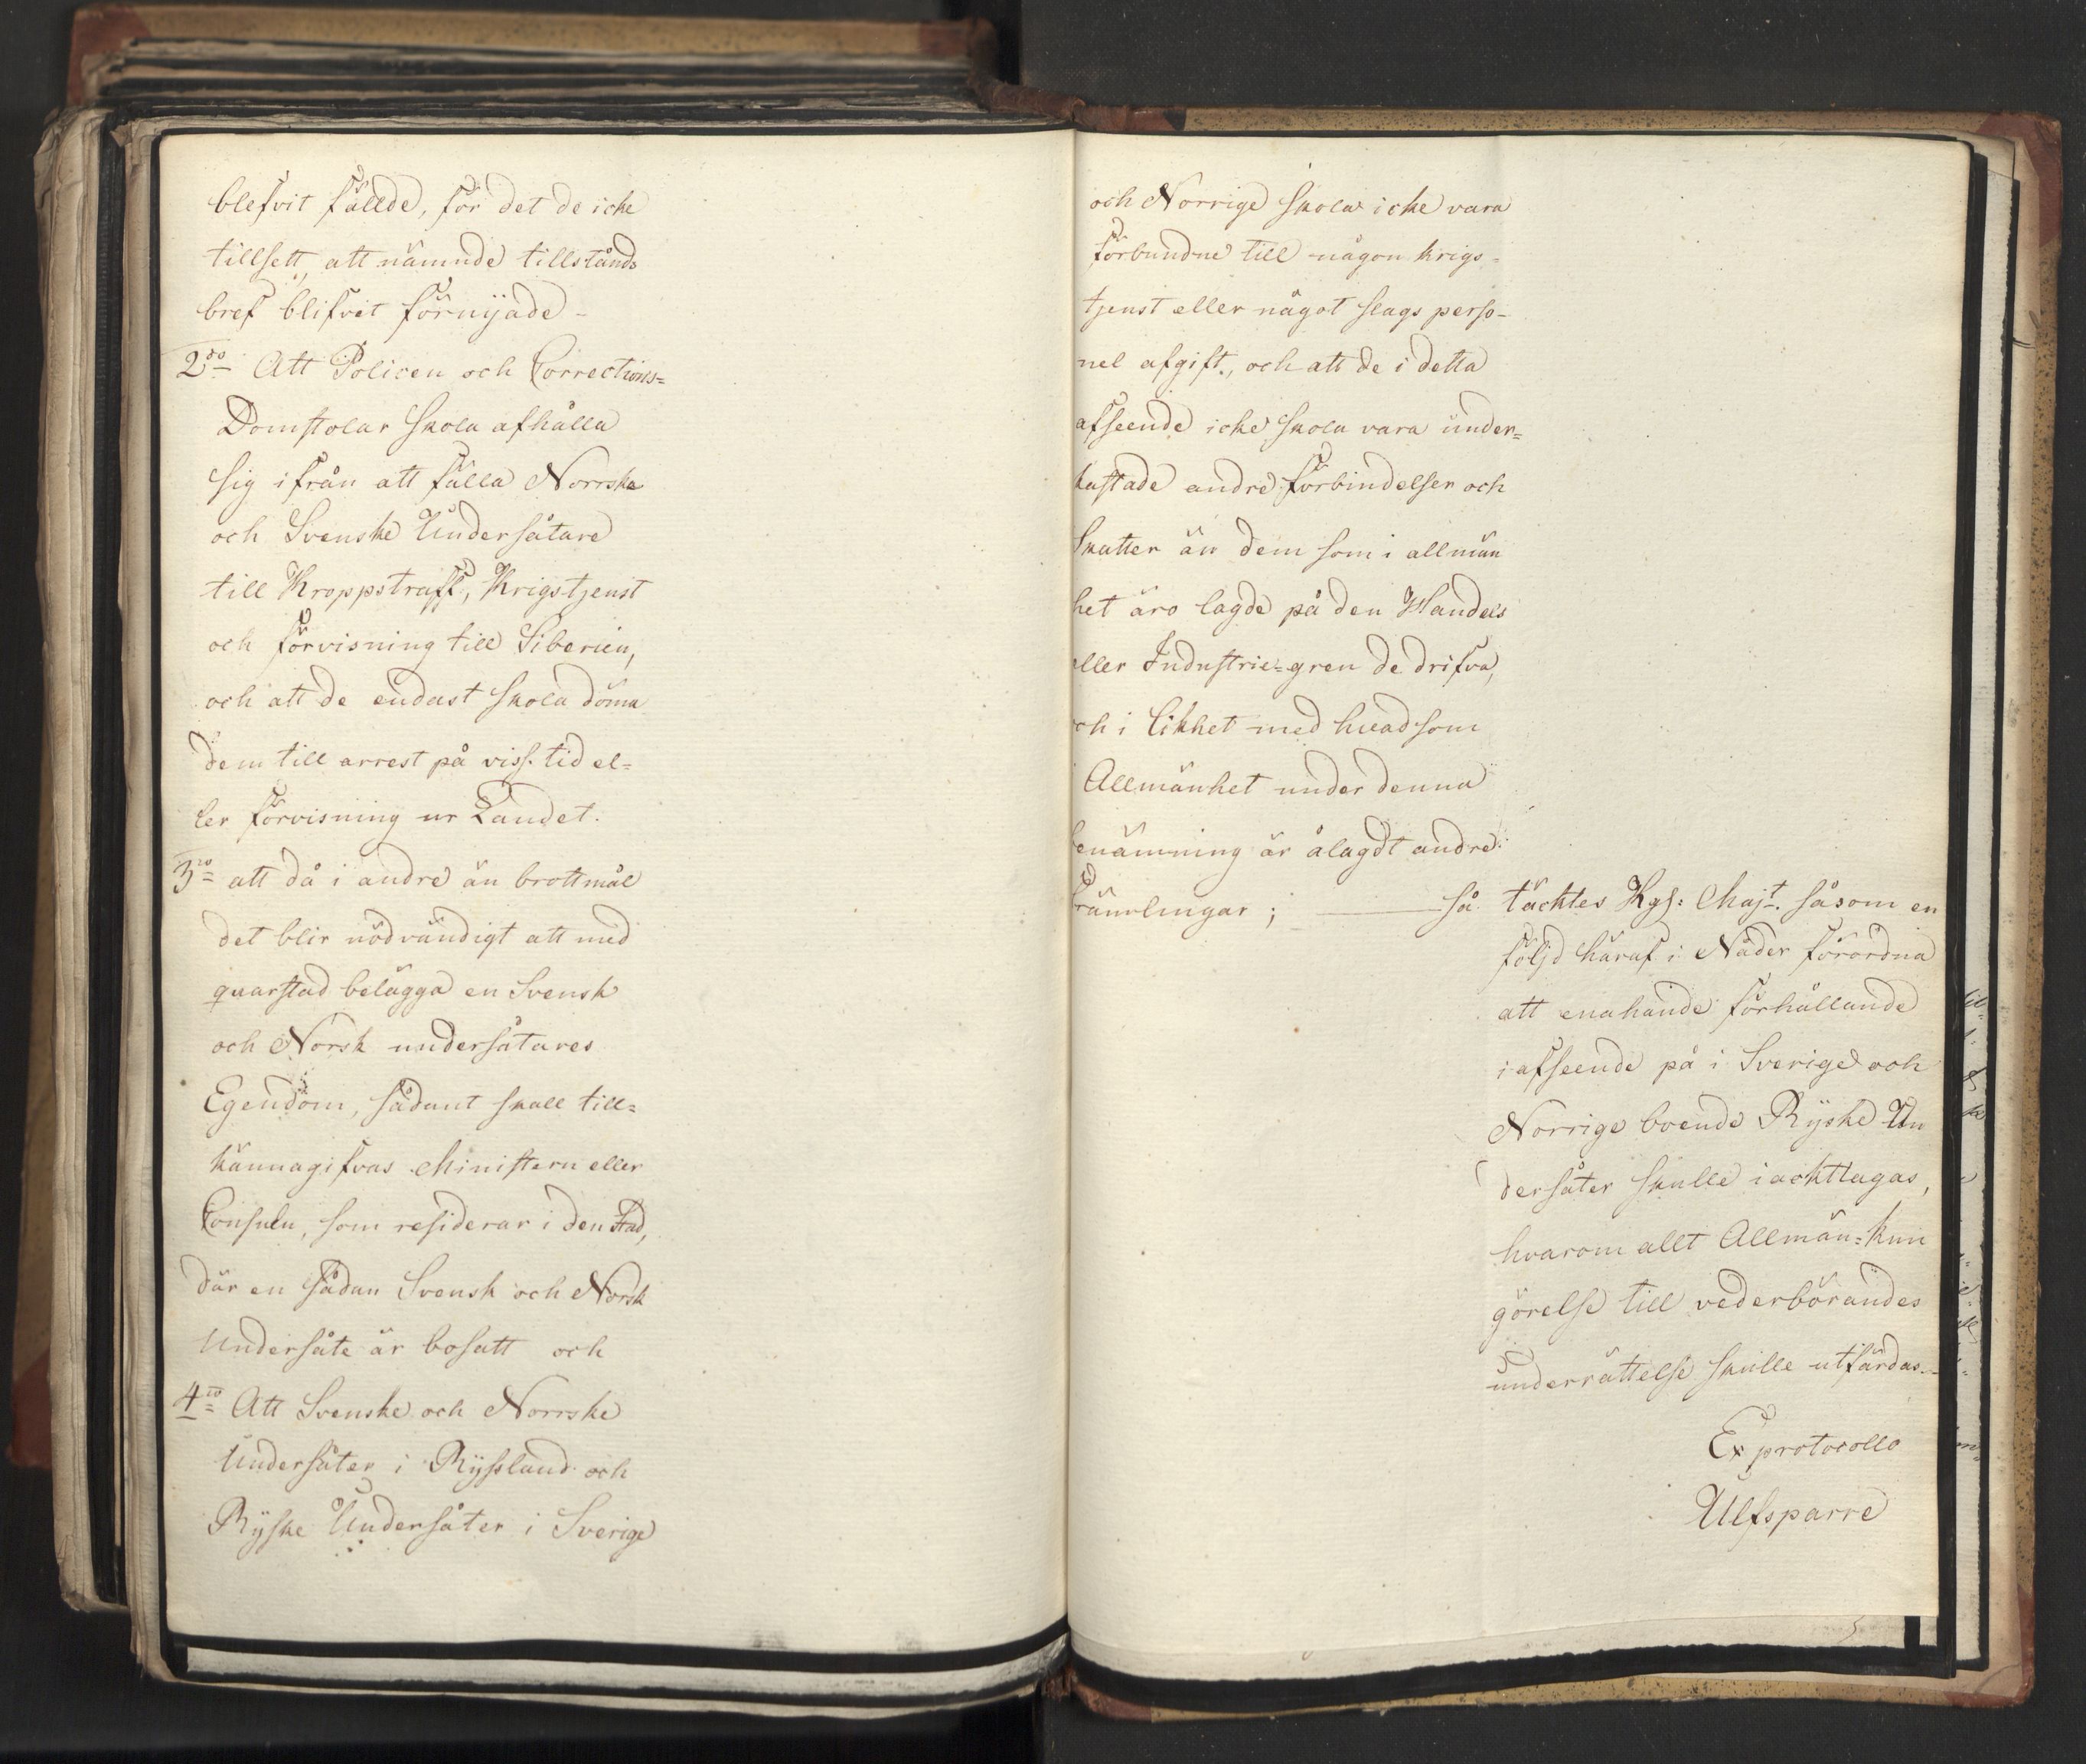 blefvit fällde, för det de icke
tillsett, att nämnde tillstånds
bref blifvit förnyade -
2do Att Policen och Corrections=
Domstolar skola afhålla
sig ifrån att fälla Norrska
och Svenske Undersåtare
till Kroppstraff, Krigstjenst
och förvisning till Siberien,
och att de endast skola döma
dem till arrest på viss tid el=
ler förvisning ur Landet.
3io att då i andre än brottmål
det blir nödvändigt att med
quarstad belägga en Svensk
och Norsk undersåtares
Egendom, sådant skall till=
kännagifvas Ministern eller
Consuln, som residerar i den Stad,
där en sådan Svensk och Norsk
Undersåte är bosatt och
4to Att Svenske och Norrske
Undersåter i Ryssland och
Ryske Undersåter i Sverige
och Norrige skola icke vara
förbundne till någon krigs=
tjenst eller något slags perso-
nel afgift, och att de i detta
afseende icke skola vara under=
kastade andre förbindelser och
Skatter än dem som i allmän
het äro lagde på den Handels
eller Industrie=gren de drifva,
och i likhet med hvad som
Allmänhet under denna
benämning är ålagdt andre
främlingar; så täcktes Kgl: Majt. såsom en
följd häraf i Nåder förordna
att enahande förhållande
i afseende på i Sverige och
Norrige boende Ryske Un
dersåter skulle iackttagas,
hvarom allt Allmän=kun
görelse till vederbörandes
underrättelse skulle utfärdas.-
Ex protocollo
Ulfsparre